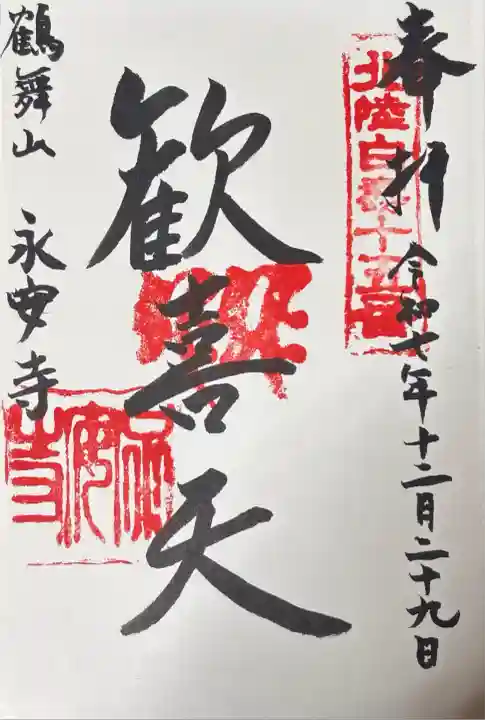 奉拝
令和七年十二月二十九日
北陸白寿十五番
歓喜天
鶴舞山 永安寺
永安寺